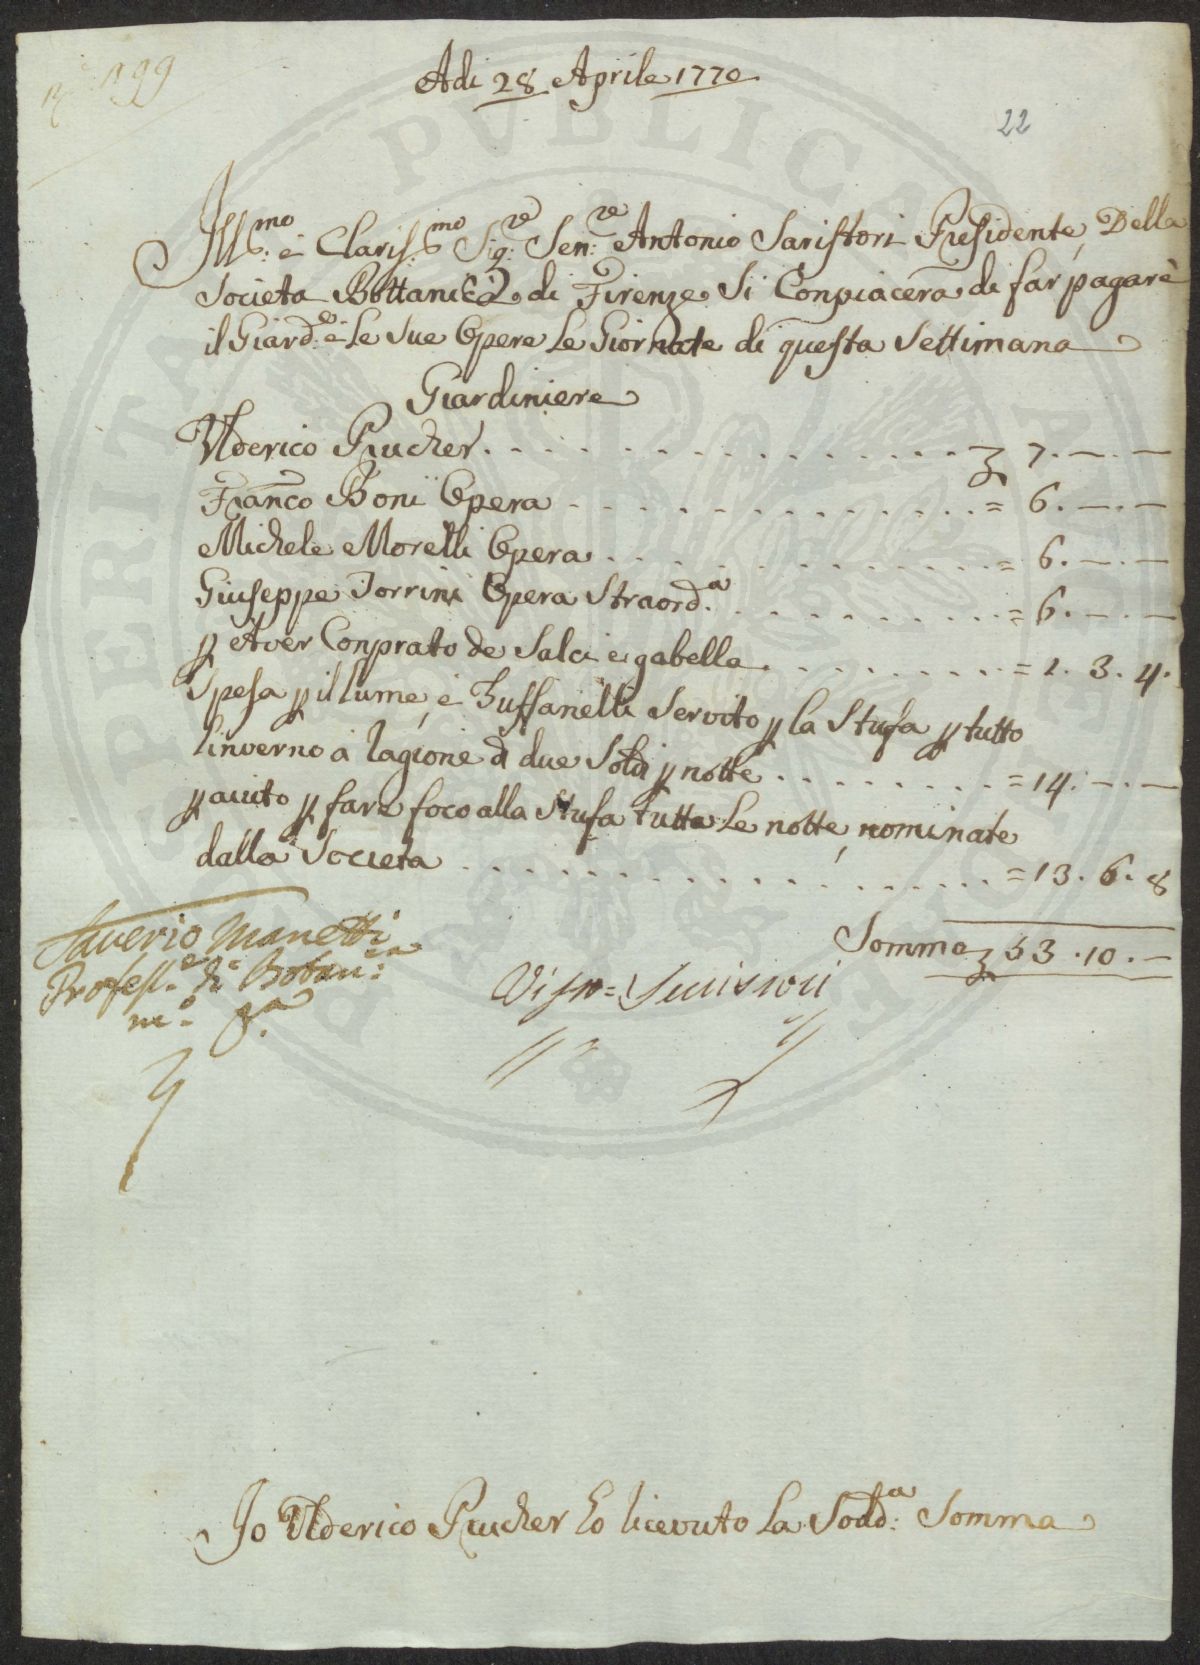 N.° 199
Adi 28 Aprile 1770
22
Ill:mo e Claris:mo Sig:re Sen:re Antonio Saristori Presidente Della
Societa Bottanica di Firenze Si Conpiacera di far pagare
il Giard:e e le sue Opere le Giornate di questa Settimana
Giardiniere
Ulderico Prucher . . . . . . . . . . £ 7. —. —
Franco Boni Opera . . . . . . . . . . = 6. —. —
Michele Morelli Opera . . . . . . . . . . = 6. —. —
Giuseppe Torrini Opera Straord:a . . . . . . . . . . = 6. —. —
p Aver Conprato de Salci e gabella . . . . . . . . = 1. 3. 4.
Spesa p il lume, e Zuffanelli Servito p la Stufa p tutto
linverno a lagione d due Soldi p notte . . . . . . . . = 14. —. —
p auito p fare foco alla Stufa tutte le notte, nominate
dalla Societa . . . . . . . . . . = 13. 6. 8
Somma £ 53. 10. —
Saverio Manetti
Profess:e di Botan:ca
m:o p:a
Visto =
Io Ulderico Prucher ho licevuto la Sodd:a Somma
PERITA PVBLICA